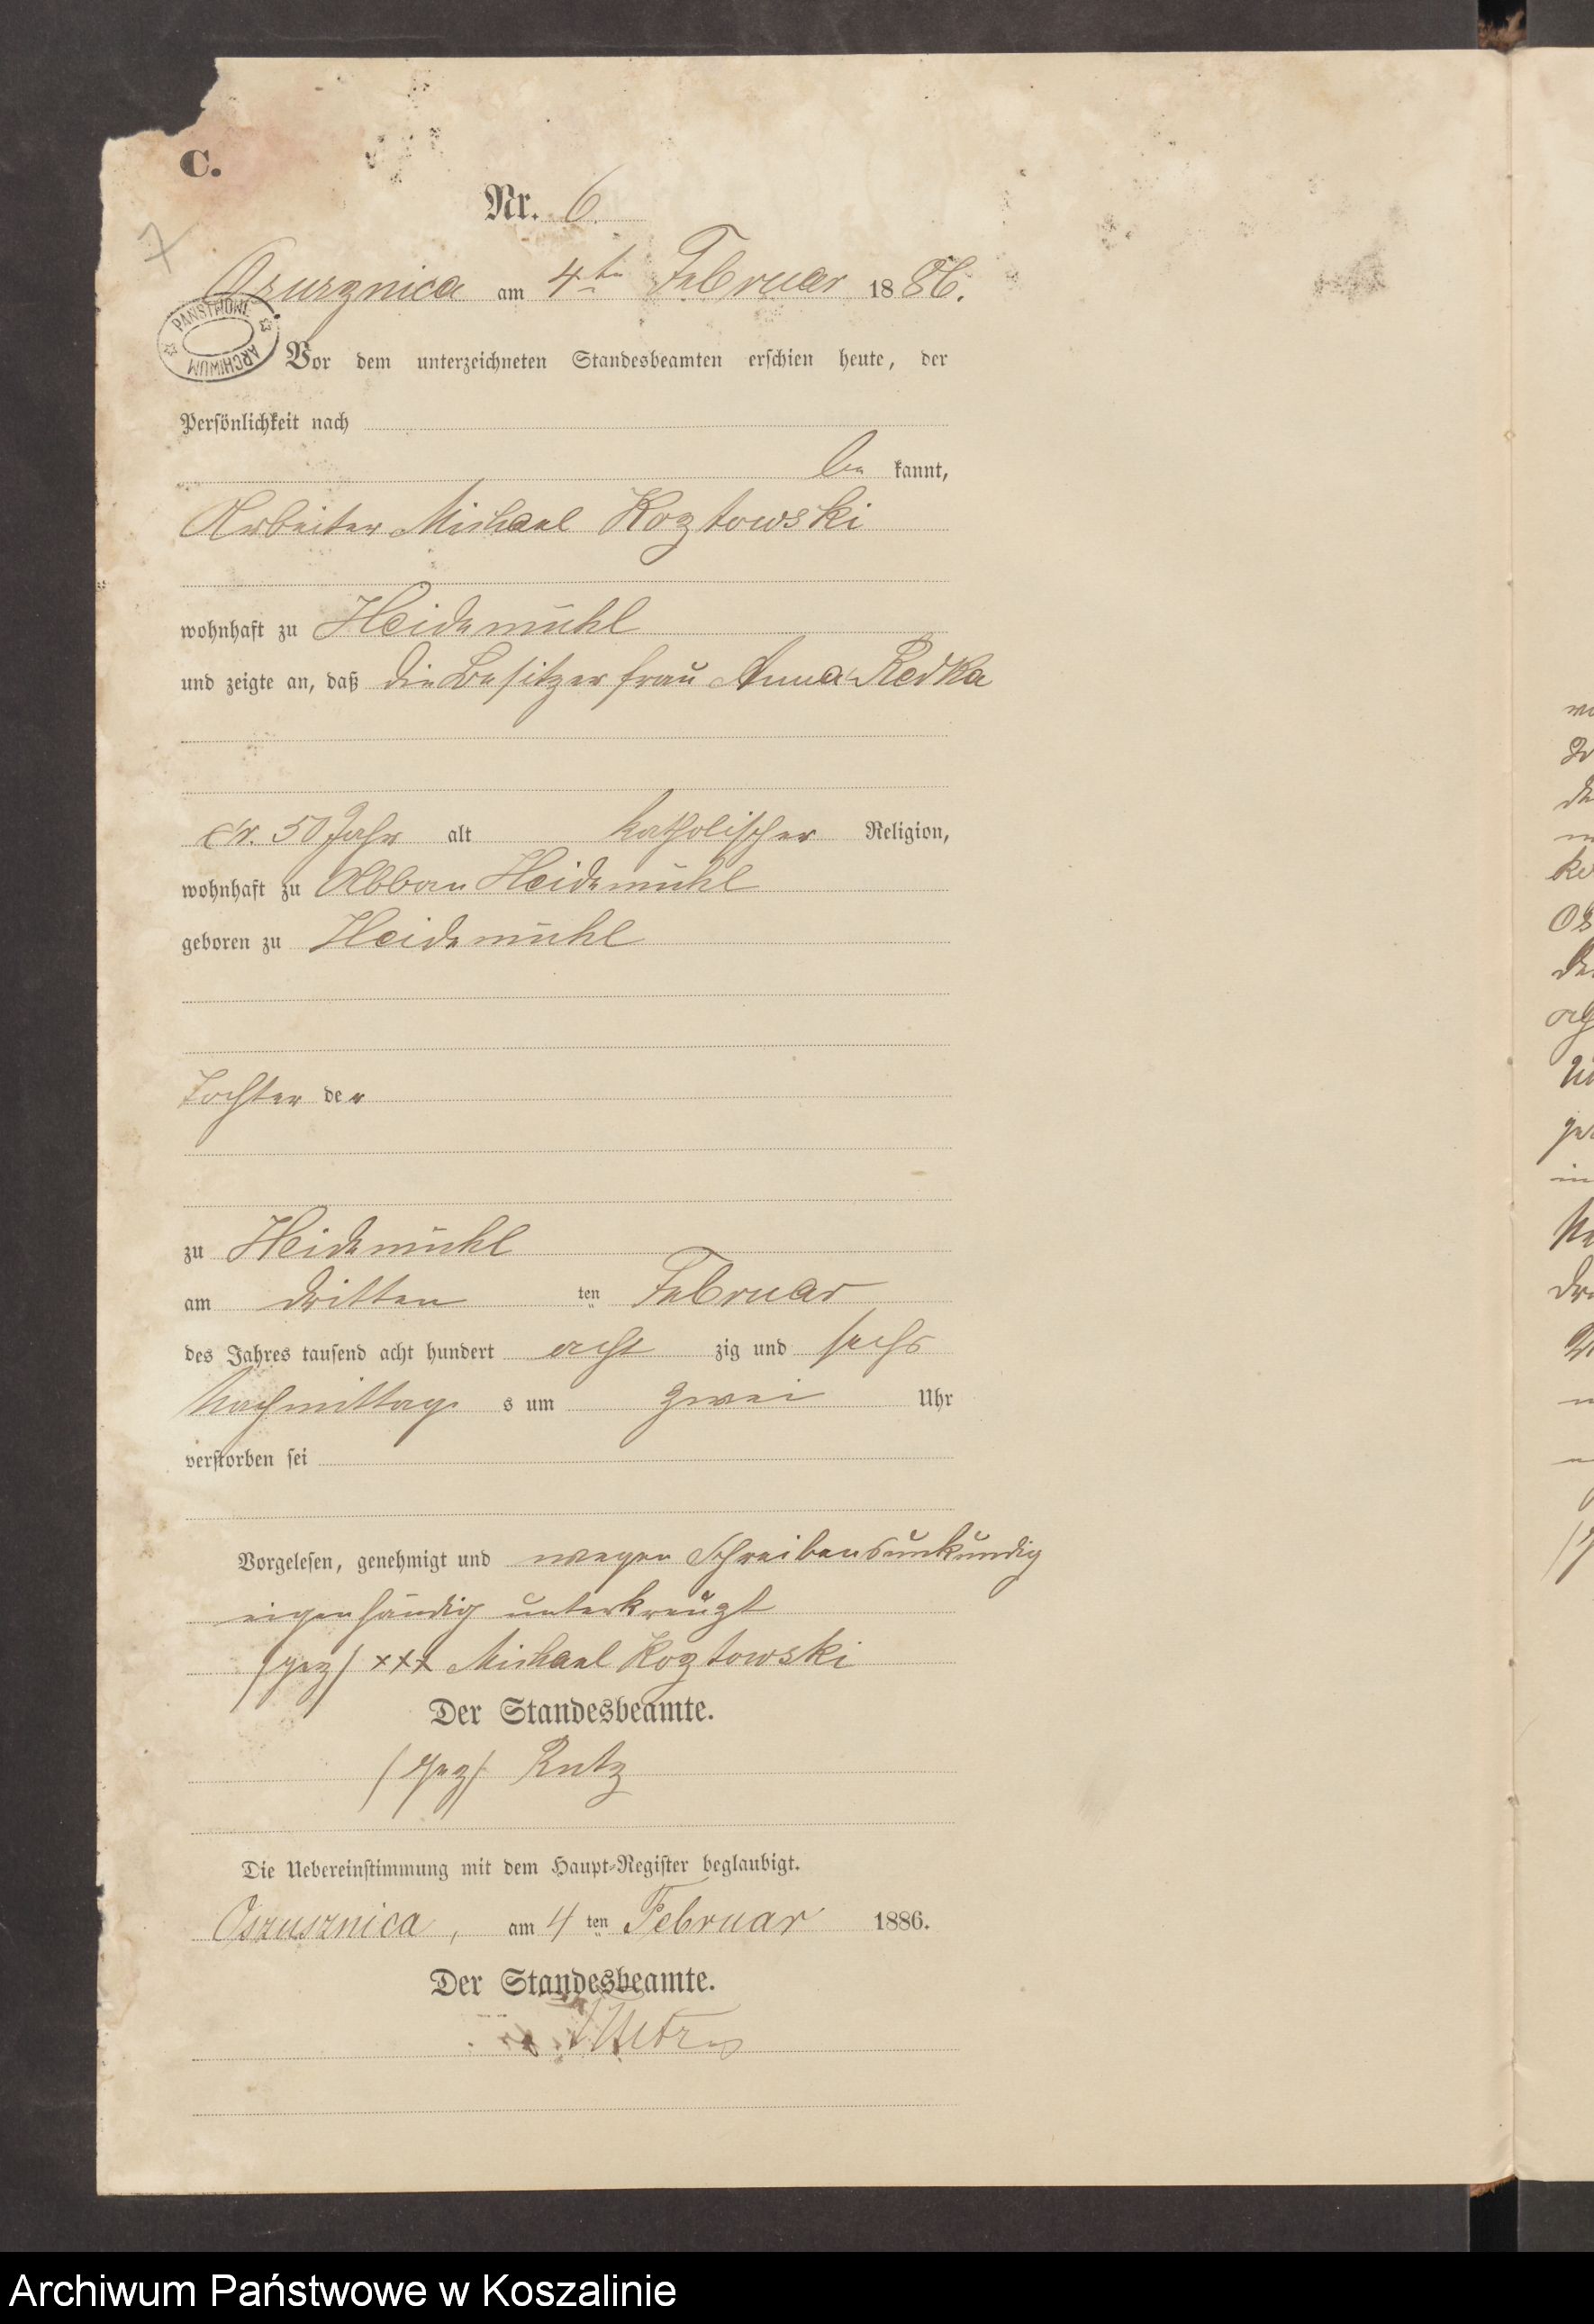 C.
Nr. 6.
7
Oszusznica am 4ten Februar 1886.
PAŃSTWOWE ARCHIWUM
Vor dem unterzeichneten Standesbeamten erschien heute, der
Persönlichkeit nach
be kannt,
Arbeiter Michael Kozlowski
wohnhaft zu Heidemühl
und zeigte an, daß die Besitzerfrau Anna Redka
cr. 50 Jahr alt katholischer Religion,
wohnhaft zu Abbau Heidemühl
geboren zu Heidemühl
Tochter der
zu Heidemühl
am dritten ten Februar
des Jahres tausend acht hundert acht zig und sechs
Nachmittag s um zwei Uhr
verstorben sei
Vorgelesen, genehmigt und wegen Schreibensunkundig
eigenhändig unterkreuzt
/gez/ xxx Michael Kozlowski
Der Standesbeamte.
/gez/ Rutz
Die Uebereinstimmung mit dem Haupt-Register beglaubigt.
Oszusznica, am 4 ten Februar 1886.
Der Standesbeamte.
Archiwum Państwowe w Koszalinie